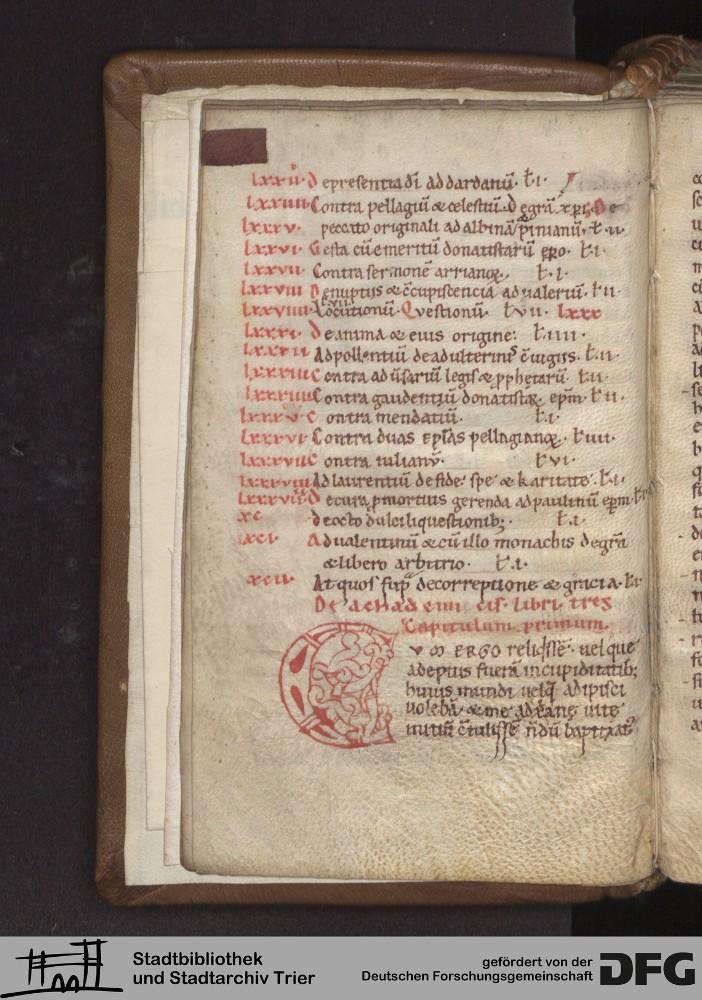 lxxii. De presentia dī ad dardanū. lƀ. i.
lxxiiii. Contra pellagiū & celestiū. De gr̄a xp̄i. De
lxxv. peccato originali ad albinā pinianū. lƀ. ii.
lxxvi. Gesta cū emeritū donatistarū ep̄o. lƀ. i.
lxxvii. Contra sermonē arrianoꝝ. lƀ. i.
lxxviii De nuptiis & c̄cupiscencia ad ualeriū. lƀ ii.
lxxviiii. Locutionū. Questionū. lƀ vii. lxxx
lxxxi. De anima & eius origine: lƀ. iiii.
lxxxii Ad pollentiū de adulterinis c̄iugiis. lƀ. ii.
lxxxiii Contra aduersariū legis & p̄phetarū. lƀ. ii.
lxxxiiii Contra gaudentiū donatistaꝝ ep̄m. lƀ. ii.
lxxxv. Contra mendatiū. lƀ. i.
lxxxvi. Contra duas ep̄las pellagianoꝝ. lƀ. iiii.
lxxxvii. Contra iulianū. lƀ. vi.
lxxxviii Ad laurentiū de fide. spe & karitate. lƀ. i.
lxxxviiii. De cura p̱ mortuis gerenda ad paulinū ep̄m. lƀ. i.
xc de octo dulcilii questionib; lƀ. i.
xci. Ad ualentinū & cū illo monachis de gr̄a
& libero arbitrio. lƀ. i.
xcii. At quos supͣ de correptione & gr̄icia. lƀ.
De achademicis. libri. tres
Capitulum. primum.
Cum ERGO reliq̄ssē. uel que
adeptus fuerā in cupiditatib;
huius mundi uel q̄ adipisci
uolebā. & me ad xp̄iane uite
inutiū c̄tulissē n̄dū baptizatꝰ
Stadtbibliothek
und Stadtarchiv Trier
gefördert von der
Deutschen Forschungsgemeinschaft
DFG